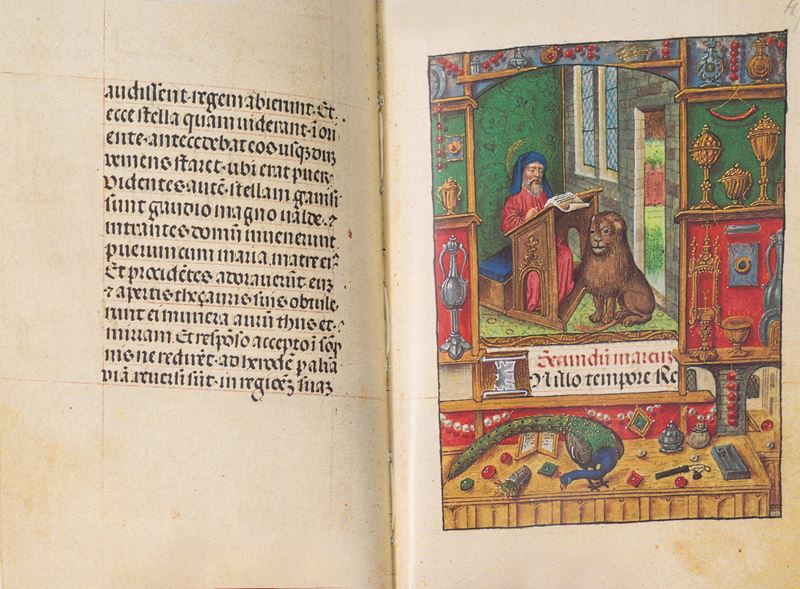 audissent regem abierunt. Et
ecce stella quam uiderant ĩ ori
ente. antecedebat eos usqꝫ dũ
veniens staret. ubi erat puer.
Videntes autẽ stellam gauisi
sunt gaudio magno ualde. ⁊
intrantes domũ inuenerunt
puerum cum maria matre eiꝰ
Et procidẽtes adorauerũt eũ
⁊ apertis theçauris suis obtule
runt ei munera aurũ thus et
mirram Et respõso accepto ĩ sõp
nis ne redirẽt ad herodẽ p aliã
viã reuersi sũt in regionẽ suã
Secundũ marcũ
N illo tempore Re